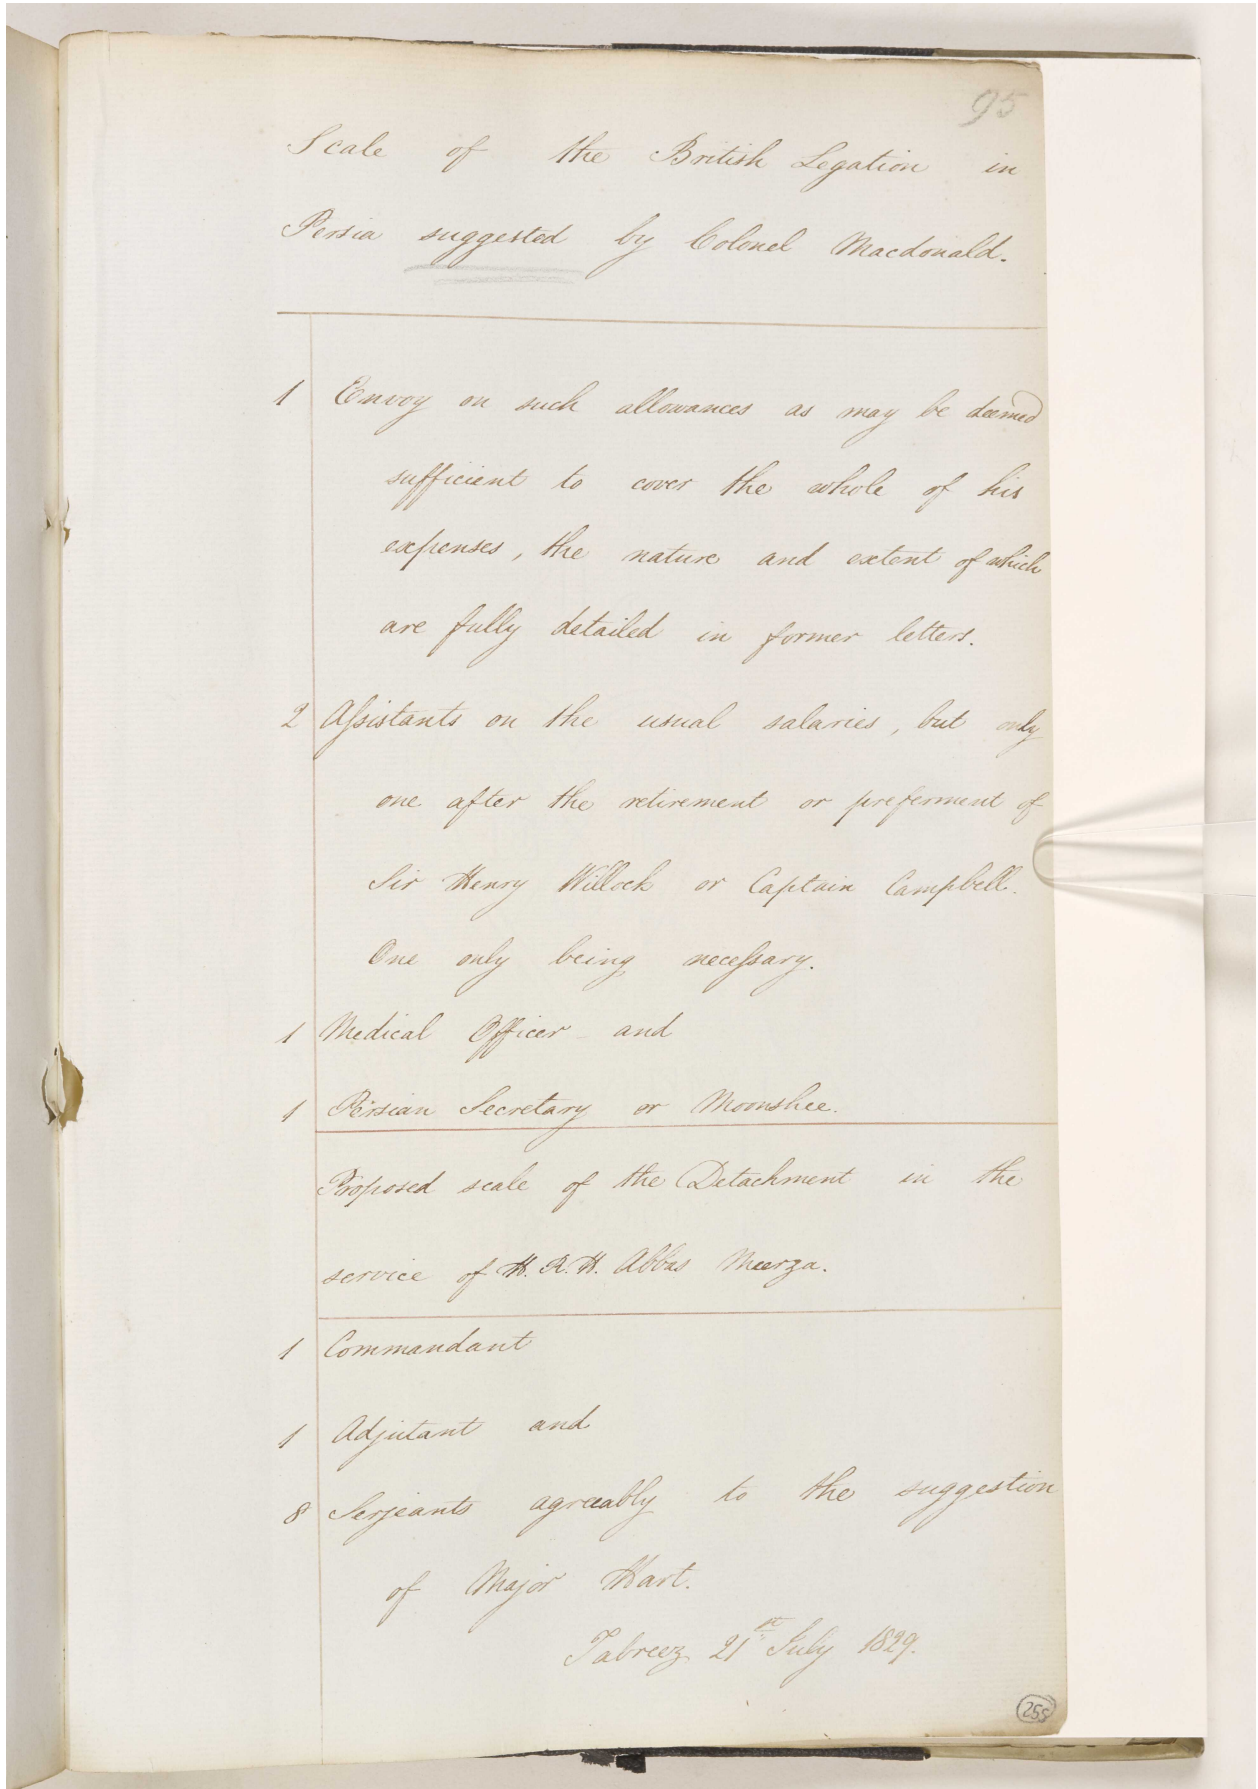 95
Scale of the British Legation in
Persia suggested by Colonel Macdonald.
1 Envoy on such allowances as may be deemed
sufficient to cover the whole of his
expenses, the nature and extent of which
are fully detailed in former letters.
2 Assistants on the usual salaries, but only
one after the retirement or preferment of
Sir Henry Willock or Captain Campbell.
One only being necessary.
1 Medical Officer and
1 Persian Secretary or Moonshee.
Proposed scale of the Detachment in the
service of H. R. H. Abbas Meerza.
1 Commandant
1 Adjutant and
8 Serjeants agreeably to the suggestion
of Major Hart.
Tabreez 21st July 1829.
255